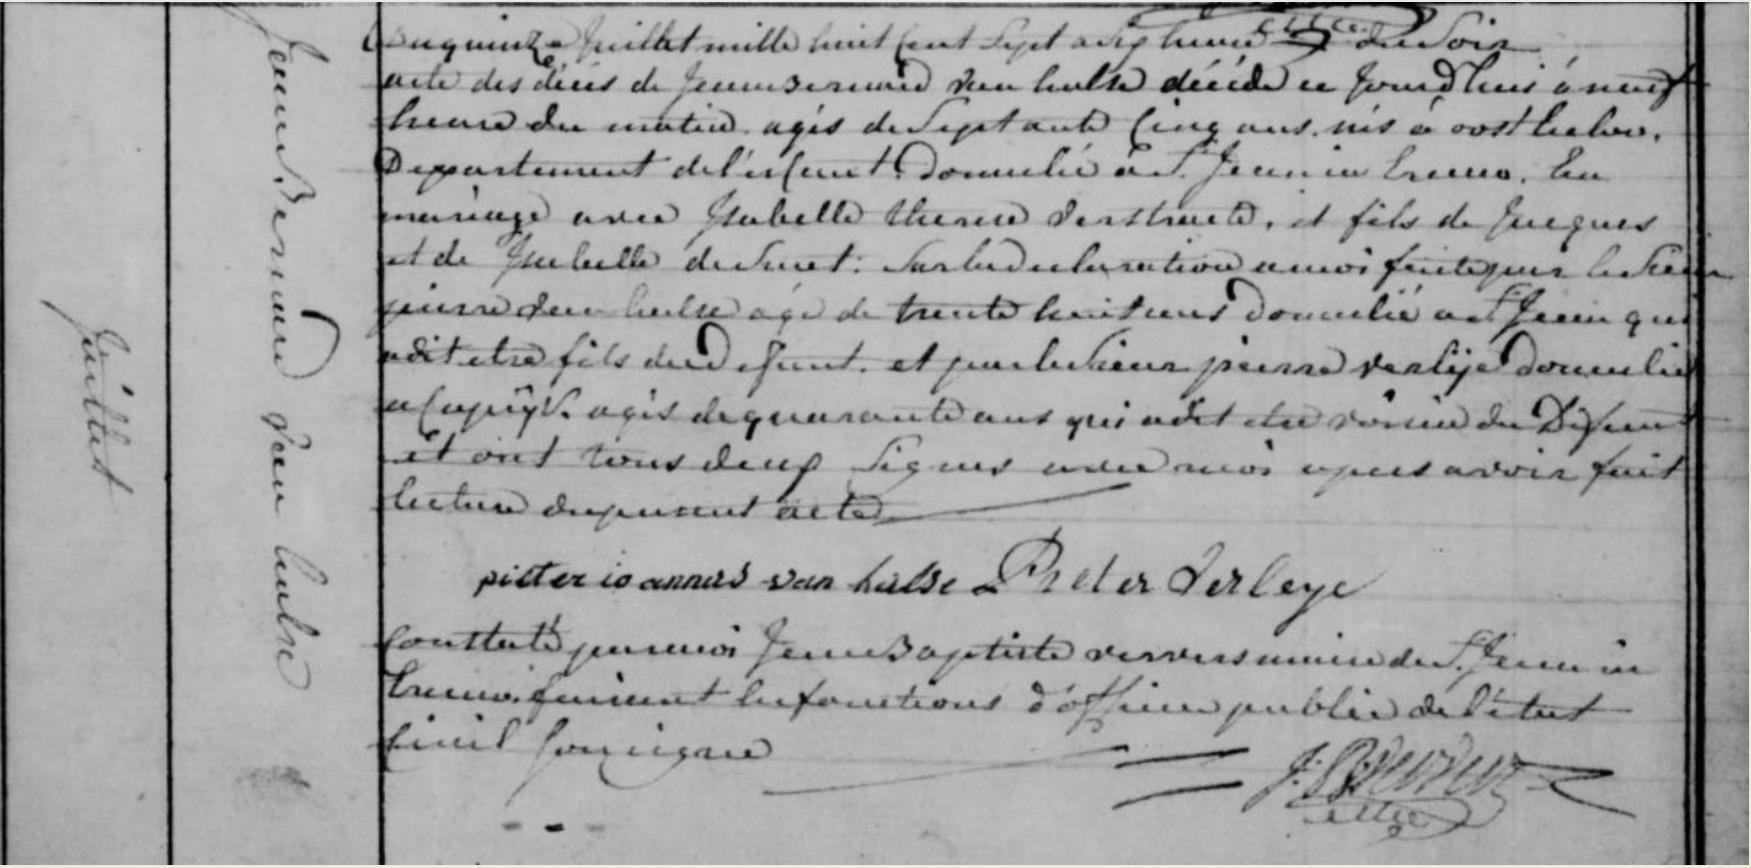 Juillet
Jean Bernard Van hulse
Du quinze Juillet mille huit Cent Sept a six heure du Soir
acte des décés de Jean Bernard van hulse décédé ce Jourd'huis á neuf
heure du matin. agés de Septante Cinq ans. nés á oost
Departement de l'escaut. Domicilié á St. Jean in Eremo. En
mariage avec Isabelle therese verstraete, et fils de Jacques
et de Isabelle de Smet: Sur la declaration a moi faite par le Sieur
pierre van hulse agé de trente huit ans Domicilié a St. Jean qui
a dit etre fils du Defunt. et par le Sieur pierre verleije Domicilié
a Capryk. agés de quarante ans qui a dit etre voisin du Defunt
et ont tous deux Signés avec moi apres avoir fait
lecture du present acte
pieter ioannes van hulse Pieter Verleye
Constaté par moi Jean Baptiste maire de St. Jean in
Eremo. faisant les fonctions d'officier public de l'état
Civil Soussigné